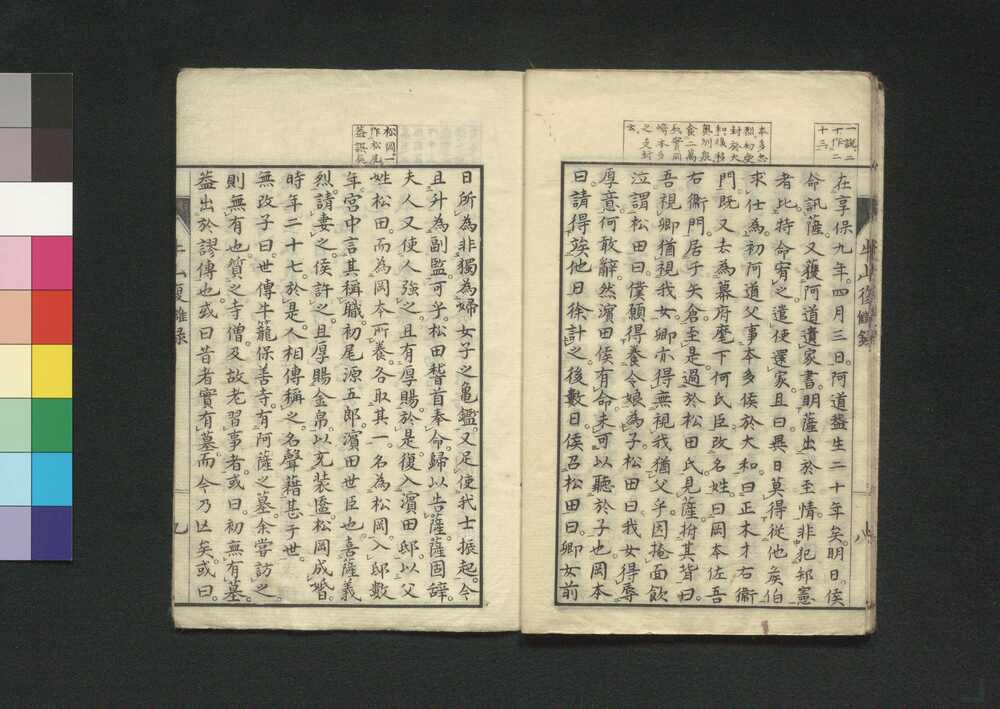 一説二
十作二
十三
本多忠
封於大
和後移
奥州泉
食二萬
石
崎本多
之支封
云
在享保九年四月三日阿道益生二十年矣明日侯
命訊薩又獲阿道遺家書明薩出於至情非犯邦憲
者比特命宥之遣使還家且曰異日莫得從他矣伯
来仕為初阿道父事本多侯於大和曰正木才右衞
門既又去為幕府麾下何氏臣改名姓曰岡本佐吾
右衞門居于矢倉至是過於松田氏見薩拊其背曰
吾視卿猶視我女卿亦得無視我猶父乎因掩面飲
泣謂松田曰僕願得養令娘為子松田曰我女得辱
厚意何敢辭然濱田侯有命未可以聽於子也岡本
曰請得竢他日徐計之後數日侯召松田曰卿女前
八
松岡一
作松尾
蓋誤矣
日所為非獨為婦女子之龜鑑又足使我士振起今
且升為副監可乎松田嵆首奉命歸以告薩薩固辭
夫人又使人強之且有厚賜於是復入濱田邸以父
姓松田而為岡本所養各取其一名為松岡入邸數
年宮中言其稱職初尾源五郎濱田世臣也喜薩義
烈請妻之侯許之且厚賜金帛以充装匳松岡成婚
時年二十七於是人相傳稱之名聲藉甚于世
無改子曰世傳牛籠保善寺有阿薩之墓余嘗訪之
則無有也質之寺僧及故老習事者或曰初無有墓
蓋出於謬傳也或曰昔者實有墓而今乃亾矣或曰
九